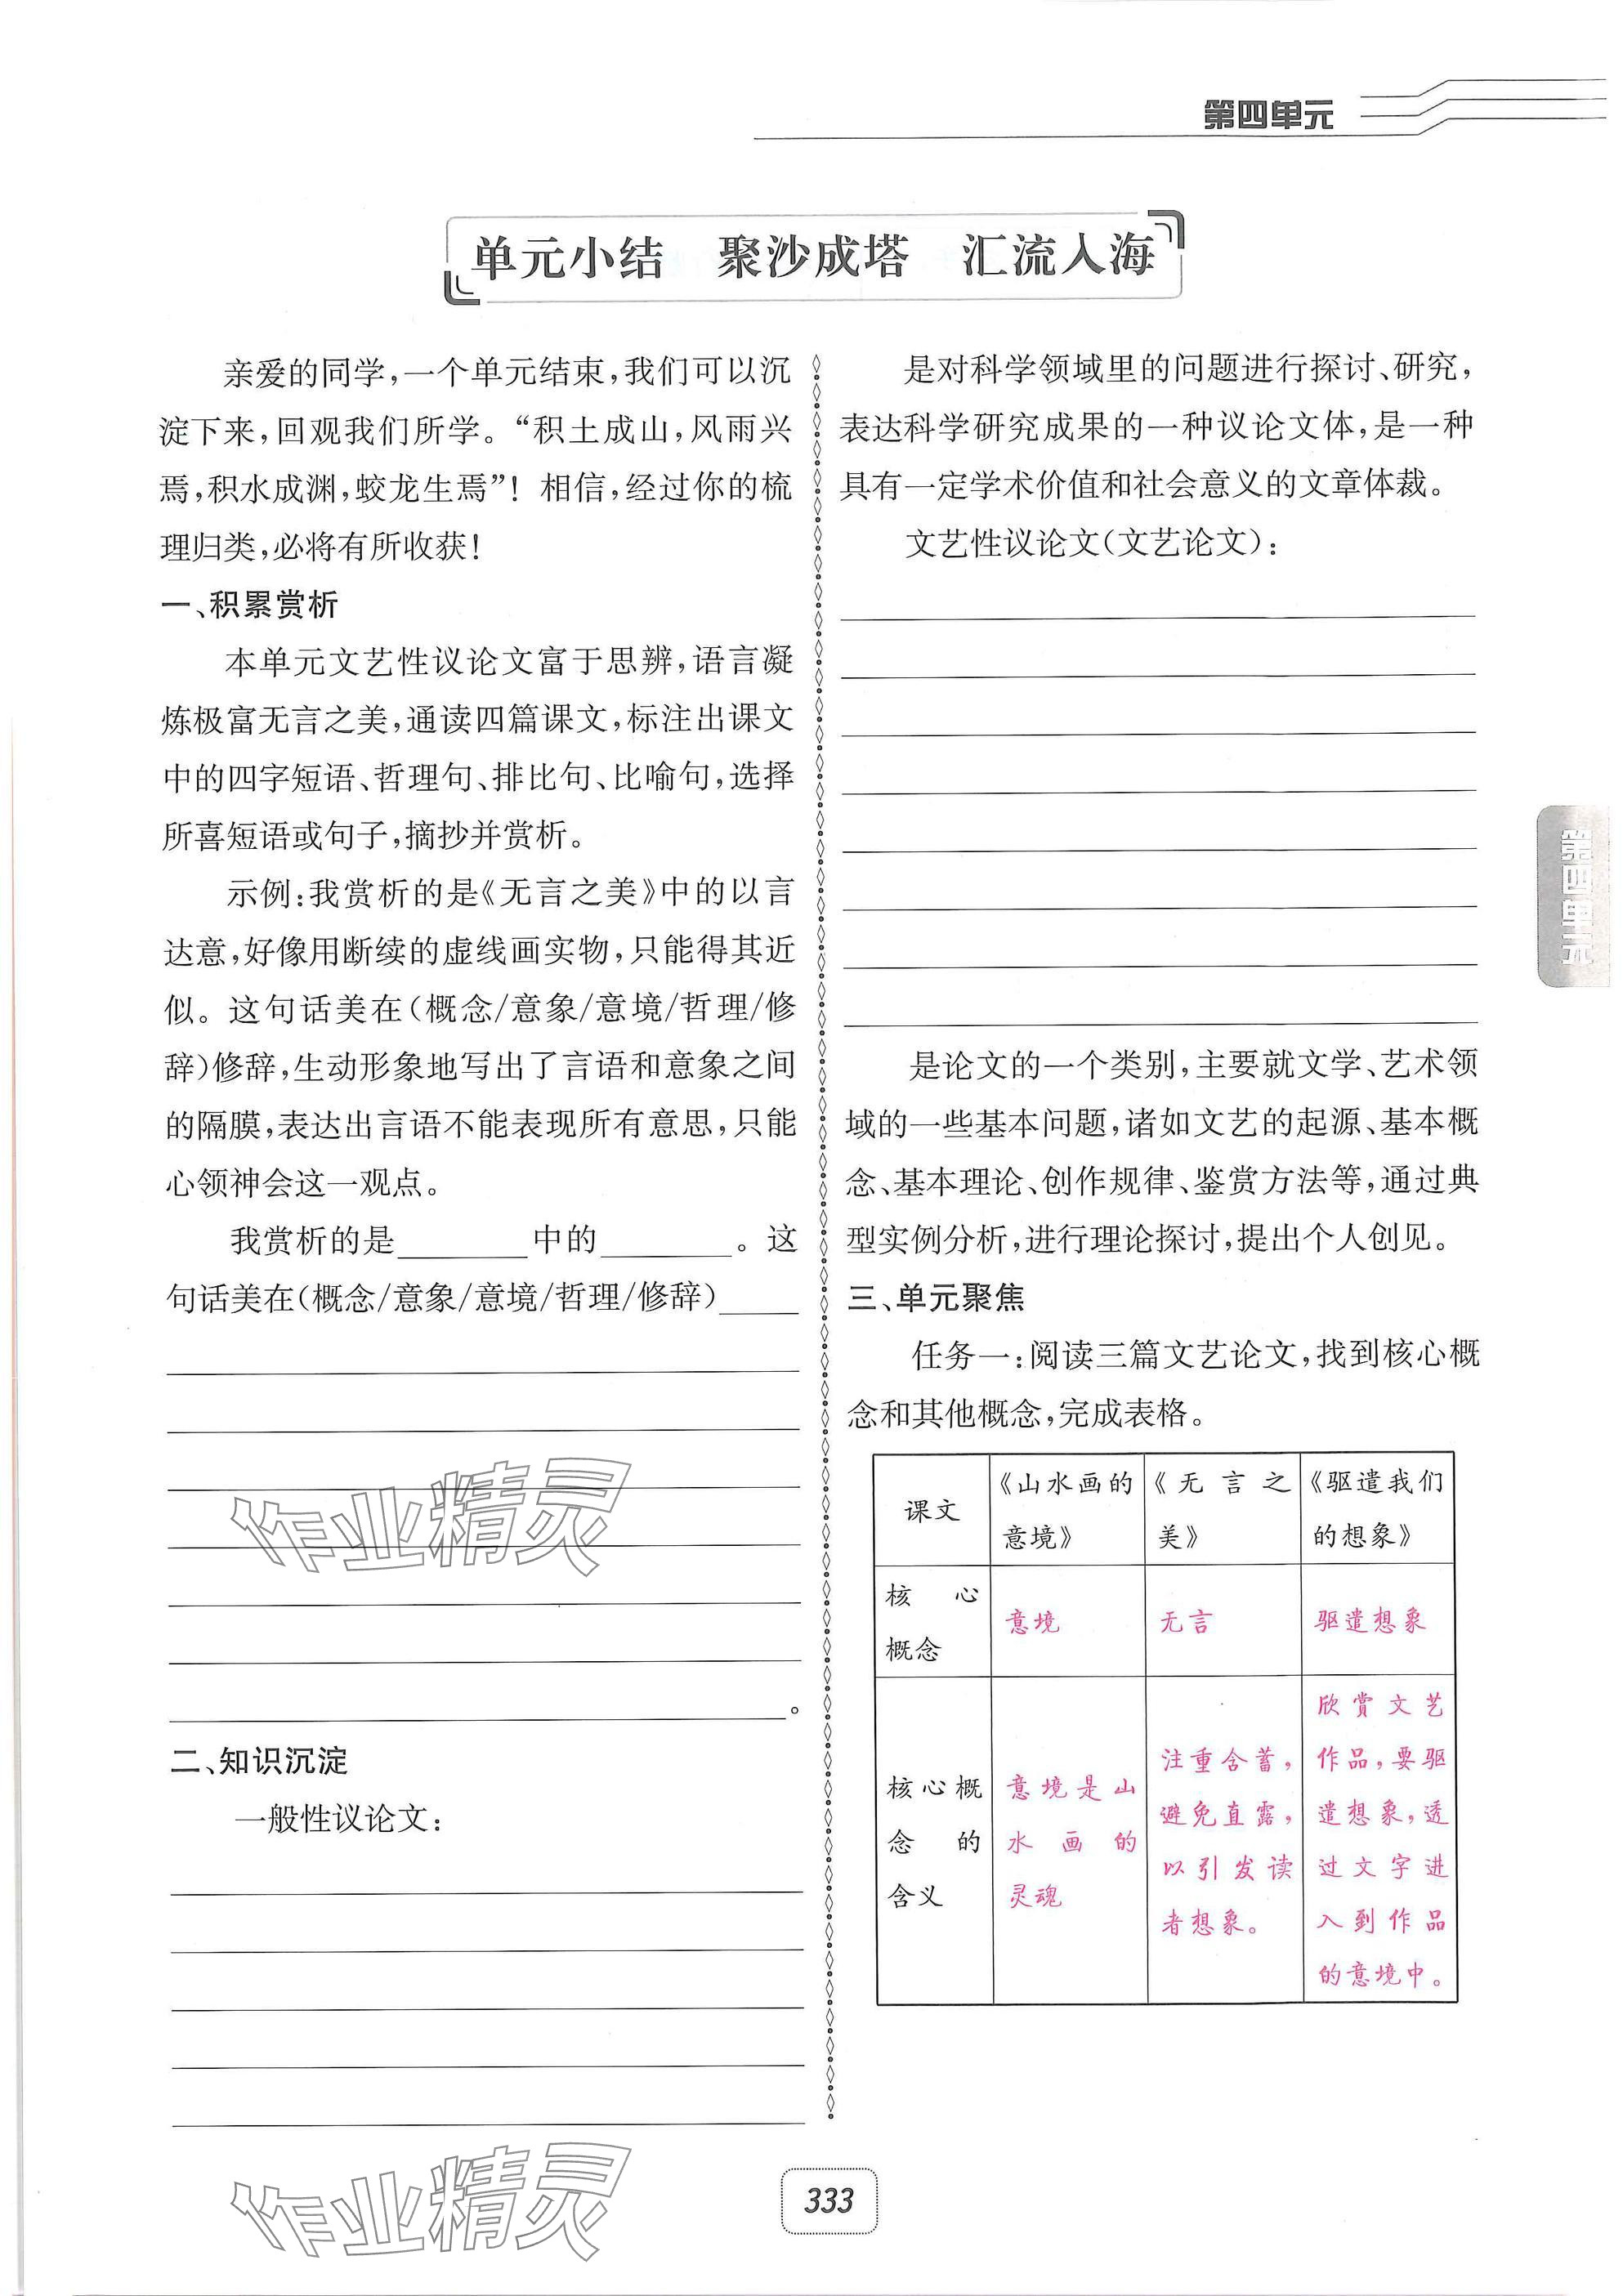 第四单元
单元小结　聚沙成塔　汇流入海
亲爱的同学，一个单元结束，我们可以沉
淀下来，回观我们所学。“积土成山，风雨兴
焉，积水成渊，蛟龙生焉”！相信，经过你的梳
理归类，必将有所收获！
一、积累赏析
本单元文艺性议论文富于思辨，语言凝
炼极富无言之美，通读四篇课文，标注出课文
中的四字短语、哲理句、排比句、比喻句，选择
所喜短语或句子，摘抄并赏析。
示例：我赏析的是《无言之美》中的以言
达意，好像用断续的虚线画实物，只能得其近
似。这句话美在（概念/意象/意境/哲理/修
辞）修辞，生动形象地写出了言语和意象之间
的隔膜，表达出言语不能表现所有意思，只能
心领神会这一观点。
我赏析的是________中的________。这
句话美在（概念/意象/意境/哲理/修辞）_____
。
二、知识沉淀
一般性议论文：
是对科学领域里的问题进行探讨、研究，
表达科学研究成果的一种议论文体，是一种
具有一定学术价值和社会意义的文章体裁。
文艺性议论文（文艺论文）：
是论文的一个类别，主要就文学、艺术领
域的一些基本问题，诸如文艺的起源、基本概
念、基本理论、创作规律、鉴赏方法等，通过典
型实例分析，进行理论探讨，提出个人创见。
三、单元聚焦
任务一：阅读三篇文艺论文，找到核心概
念和其他概念，完成表格。
课文
《山水画的
意境》
《无言之
美》
《驱遣我们
的想象》
核心
概念
意境
无言
驱遣想象
核心概
念的
含义
意境是山
水画的
灵魂
注重含蓄，
避免直露，
以引发读
者想象。
欣赏文艺
作品，要驱
遣想象，透
过文字进
入到作品
的意境中。
第四单元
作业精灵
作业精灵
333